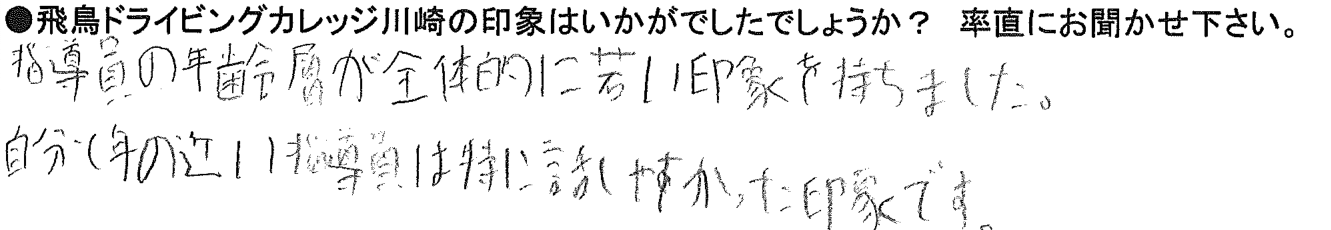 ●飛鳥ドライビングカレッジ川崎の印象はいかがでしたでしょうか？ 率直にお聞かせ下さい。
指導員の年齢層が全体的に若い印象を持ちました。
自分と年の近い指導員は特に話しやすかった印象です。